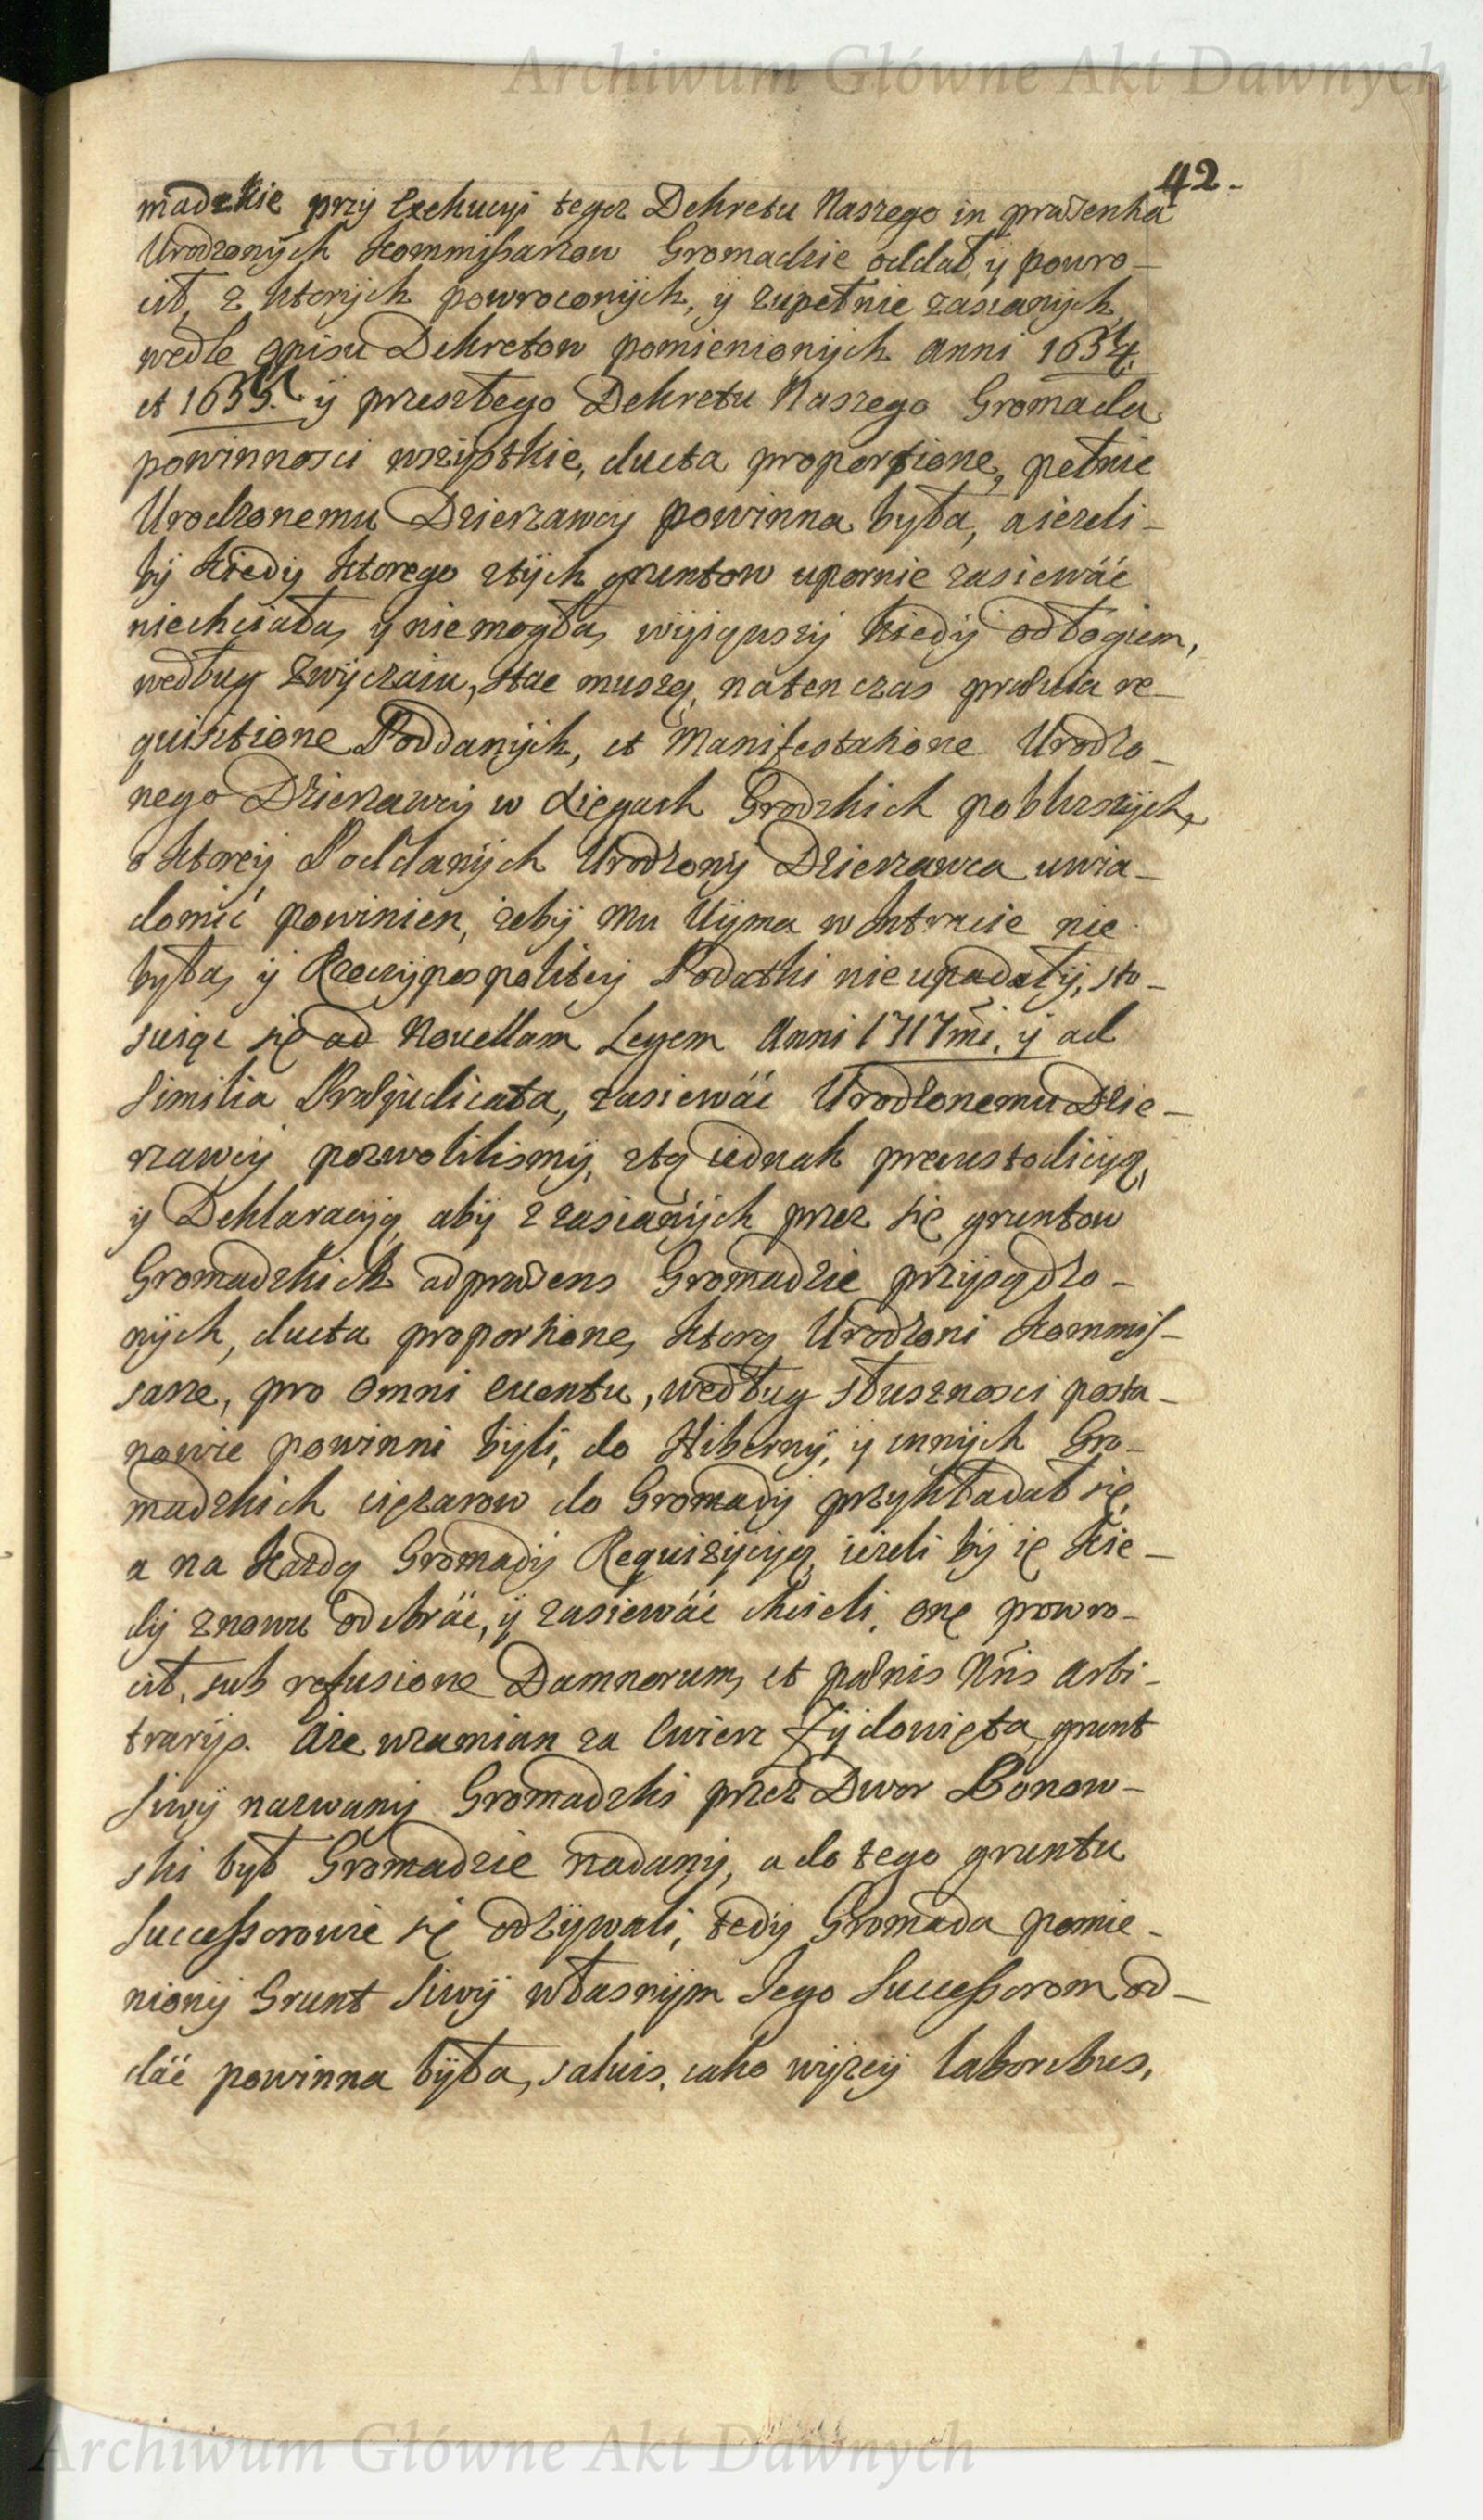 Archiwum Główne Akt Dawnych
42.
madzkie przy Exekucyi tegoz Dekretu Naszego in præsentia
Urodzonych Kommissarzow Gromadzie oddał, y powro-
cił, z ktorych powroconych, y zupełnie zasianych,
wedle opisu Dekretow pomienionych Anni 1634.
et 1635. y przeszłego Dekretu Naszego Gromada
powinnosci wszystkie, ducta proportione, pełnic
Urodzonemu Dzierzawcy powinna była, a iezeli-
by kiedy ktorego ztych gruntow upornie zasiewać
niechciała, y niemogła, wyiąwszy kiedy odłogiem,
według zwyczaiu, stac muszą, natenczas prævia re-
quisitione Poddanych, et Manifestatione Urodzo-
nego Dzierzawcy w Xięgach Grodzkich pobliszych,
o ktorey Poddanych Urodzony Dzierzawca uwia-
domić powinien, zeby mu Uyma w Intracie nie
była, y Rzeczypospolitey Podatki nie upadały, sto-
suiąc się ad Novellam Legem Anni 1717mi, y ad
similia Præjudicata, zasiewać Urodzonemu Dzie-
rzawcy pozwolilismy, ztą iednak precustodicyą,
y Deklaracyą, aby z zasianych przez się gruntow
Gromadzkich ad præsens Gromadzie przysądzo-
nych, ducta proportione, ktorą Urodzeni Kommis-
sarze, pro omni eventu, według słusznosci posta-
nowic powinni byli, do Hiberny, y innych Gro-
madzkich cięzarow do Gromady przykładał się,
a na kazdą Gromady Requizycyą, iezeli by ię kie-
dy znowu odebrać, y zasiewać chcieli, onę powro-
cił, sub refusione Damnorum, et pænis Nris Arbi-
trarijs. Aże wzamian za Cwierz Zydowięta grunt
Siwy nazwany Gromadzki przez Dwor Bonow-
ski był Gromadzie nadany, a do tego gruntu
Successorowie się odzywali, tedy Gromada pomie-
niony Grunt Siwy własnym Jego Successorom od-
dać powinna była, salvis, iako wyzey laboribus,
Archiwum Główne Akt Dawnych